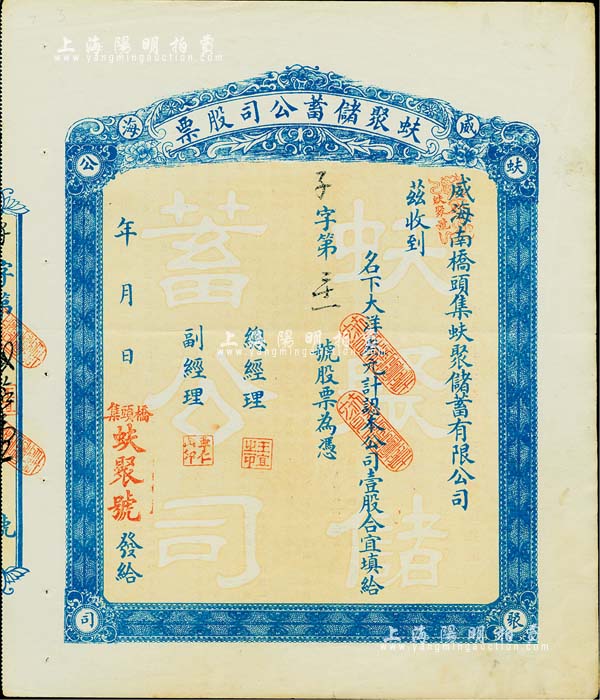 上海陽明拍賣
www.yangmingauction.com
威海
蚨聚儲蓄公司股票
蚨聚公司
威海南橋頭集蚨聚儲蓄有限公司
茲收到
名下大洋叁元計認本公司壹股合宜填給
子字第 號股票為憑
總經理
副經理
年 月 日
橋頭集
蚨聚號
發給
蚨聚儲
蓄公司
蚨聚號
王宜之印
字第
號
上海陽明拍賣
www.yangmingauction.com
上海陽明拍賣
www.yangmingauction.com